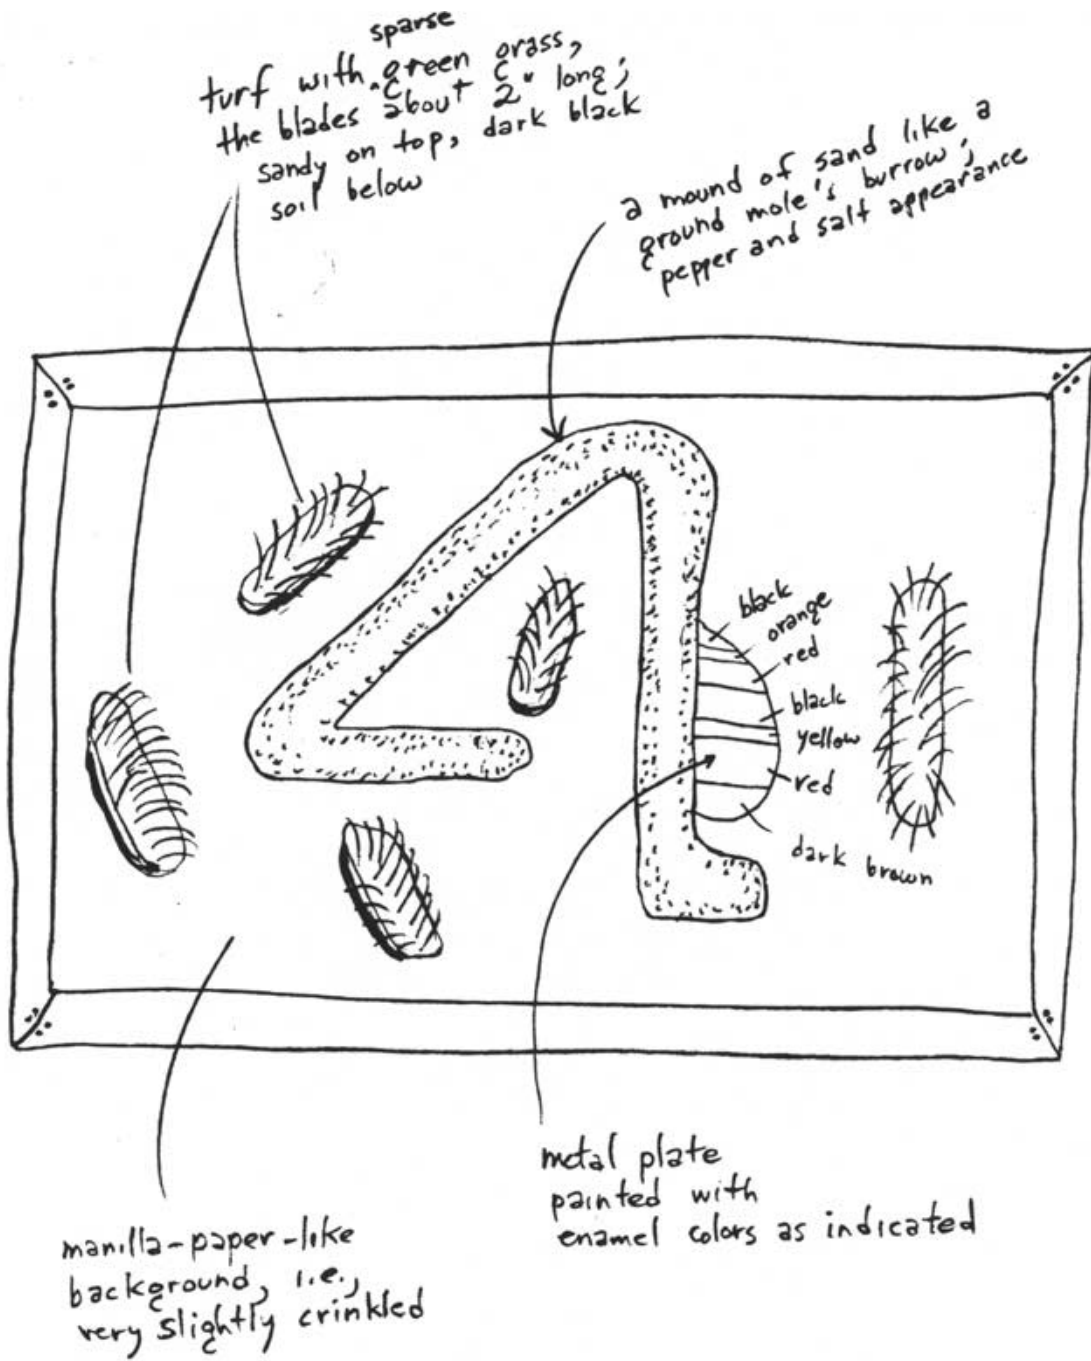 sparse
turf with ‸ green grass,
the blades about 2" long;
sandy on top, dark black
soil below
a mound of sand like a
ground mole's burrow;
pepper and salt appearance
black
orange
red
black
yellow
red
dark brown
metal plate
painted with
enamel colors as indicated
manilla-paper-like
background, i.e.,
very slightly crinkled